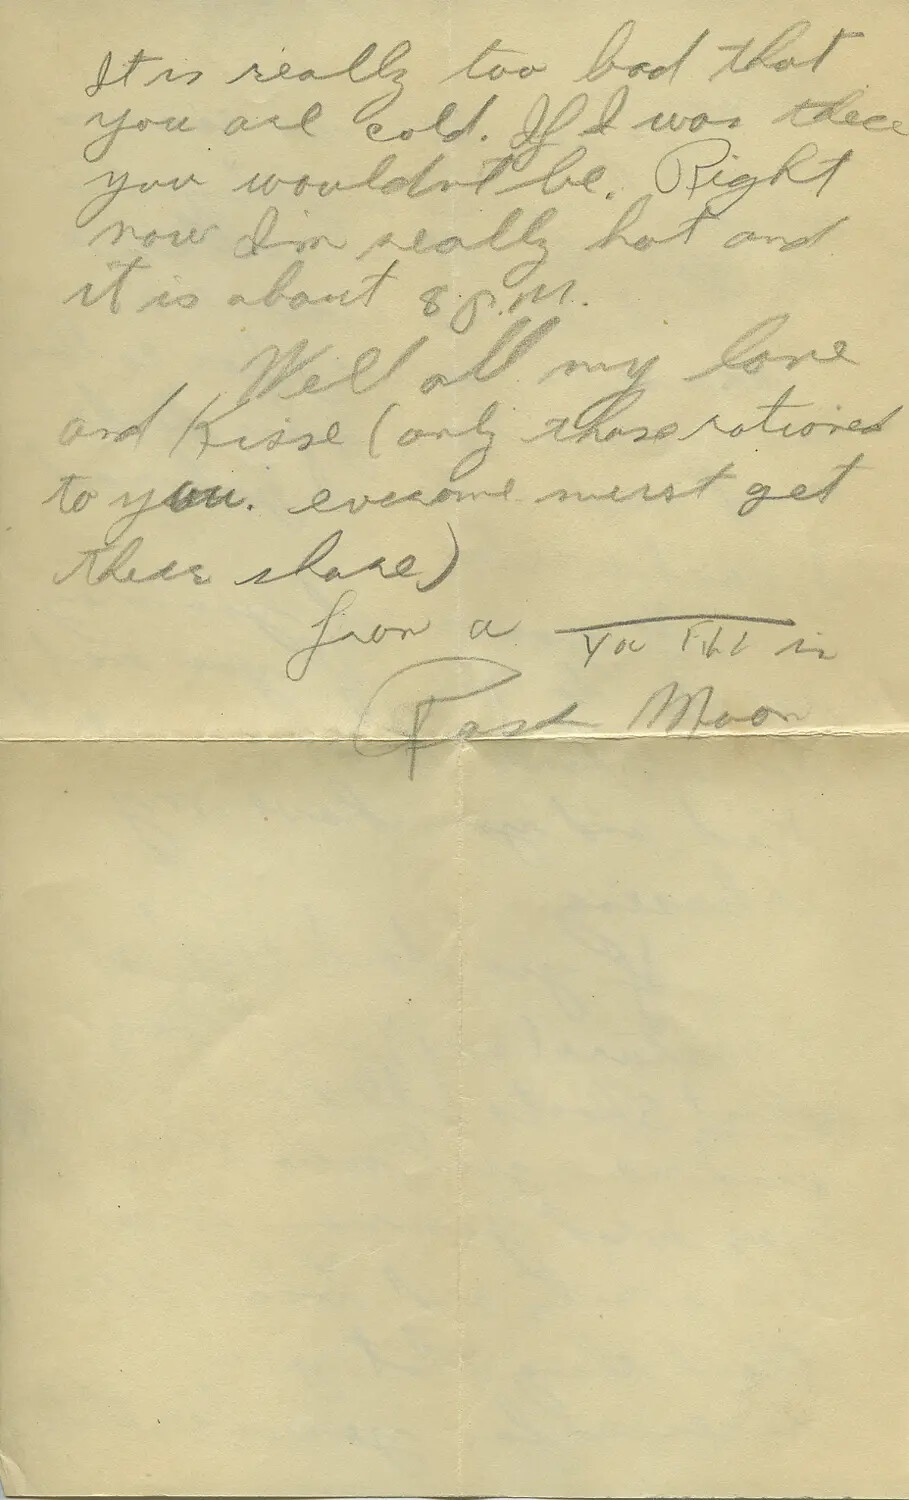 It is really too bad that
you are cold. If I was there
you wouldnt be. Right
now Im really hot and
it is about 8 p.m.
Well all my love
and Kisse (only those rationed
to you. everyone must get
their share)
from a ____
you Fill in
Moon